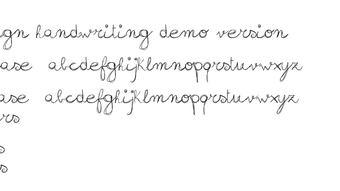 gn handwriting demo version
ase abcdefghijklmnopqrstuvwxyz
ase abcdefghijklmnopqrstuvwxyz
rs
s
s